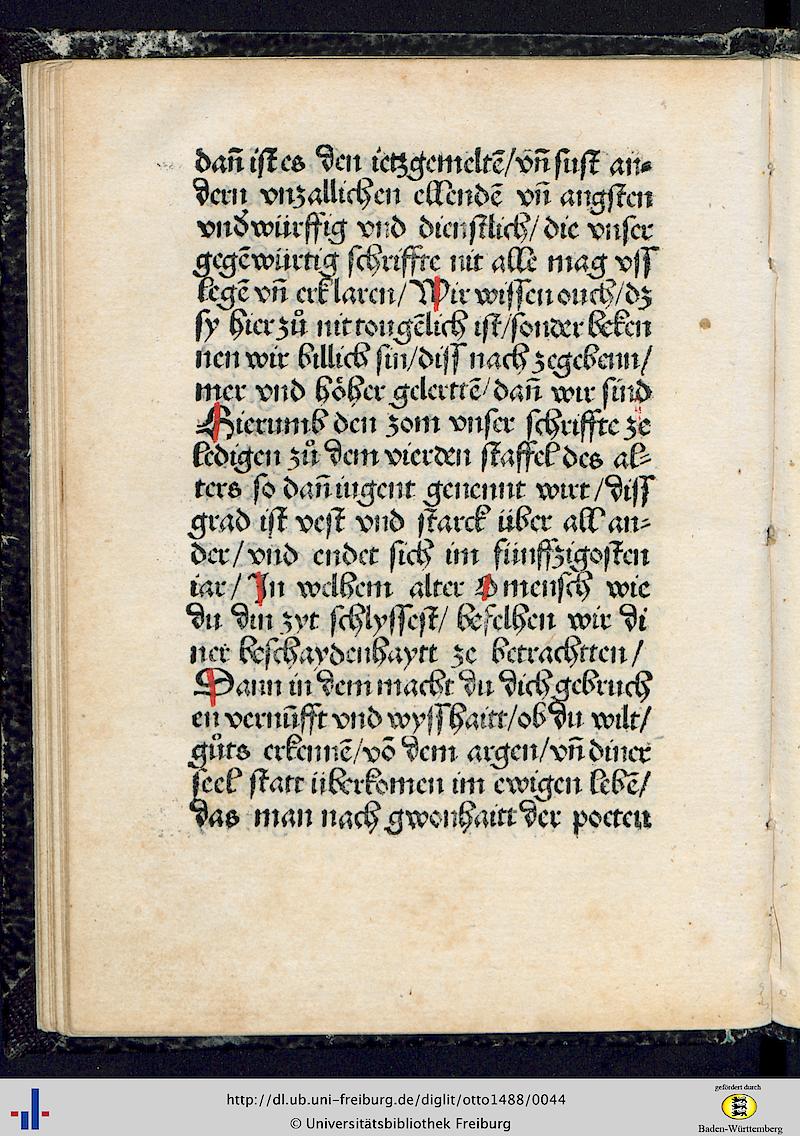 dañ ist es den ietzgemeltē/vñ sust an-
dern vnzallichen ellendē vñ angsten
vnd̕würffig vnd dienstlich/ die vnser
gegēwürtig schriffte nit alle mag vss
legē vñ erklaren/ Wir wissen ouch/dz
sy hier zů nit tougēlich ist/sonder beken
nen wir billich sin/diss nach zegebenn/
mer vnd höher gelerttē/dañ wir sind
Hierumb den zom vnser schriffte ze
ledigen zů dem vierden staffel des al-
ters so dañ iugent genennt wirt/diss
grad ist vest vnd starck über all an-
der/vnd endet sich im fünffzigosten
iar/ In welhem alter O mensch wie
du din zyt schlyssest/ befelhen wir di
ner beschaydenhaytt ze betrachtten/
Dann in dem macht du dich gebruch
en vernūfft vnd wyssshaitt/ob du wilt/
gůts erkennē/vō dem argen/vñ diner
seel statt überkomen im ewigen lebē/
das man nach gwonhaitt der poeten
http://dl.ub.uni-freiburg.de/diglit/otto1488/0044
© Universitätsbibliothek Freiburg
gefördert durch
Baden-Württemberg